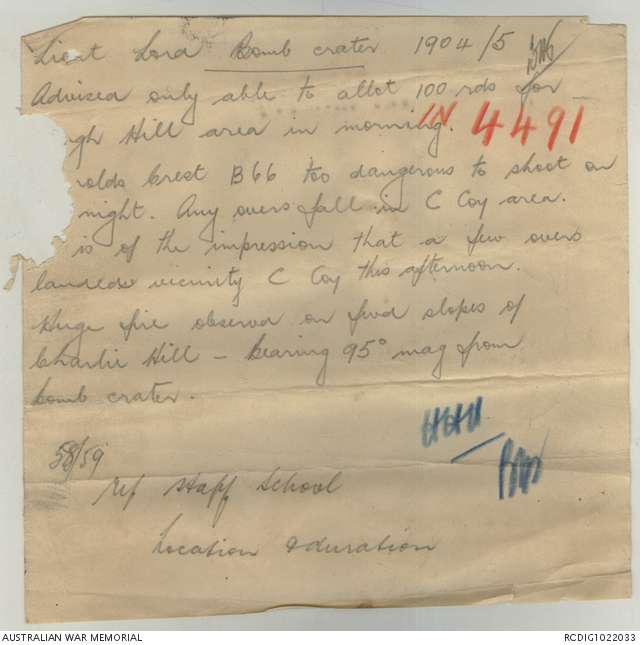 Lieut Lord Bomb crater 1904/5
Advised only able to allot 100 rds for
gh Hill area in morning. IN 4491
olds Crest B66 too dangerous to shoot on
night. Any overs fall in C Coy area.
is of the impression that a few overs
landed vicinity C Coy this afternoon.
Huge fire observed on fwd slopes of
Charlie Hill – bearing 95° mag from
bomb crater.
58/59
Ref Staff School
Location & duration
AUSTRALIAN WAR MEMORIAL
RCDIG1022033